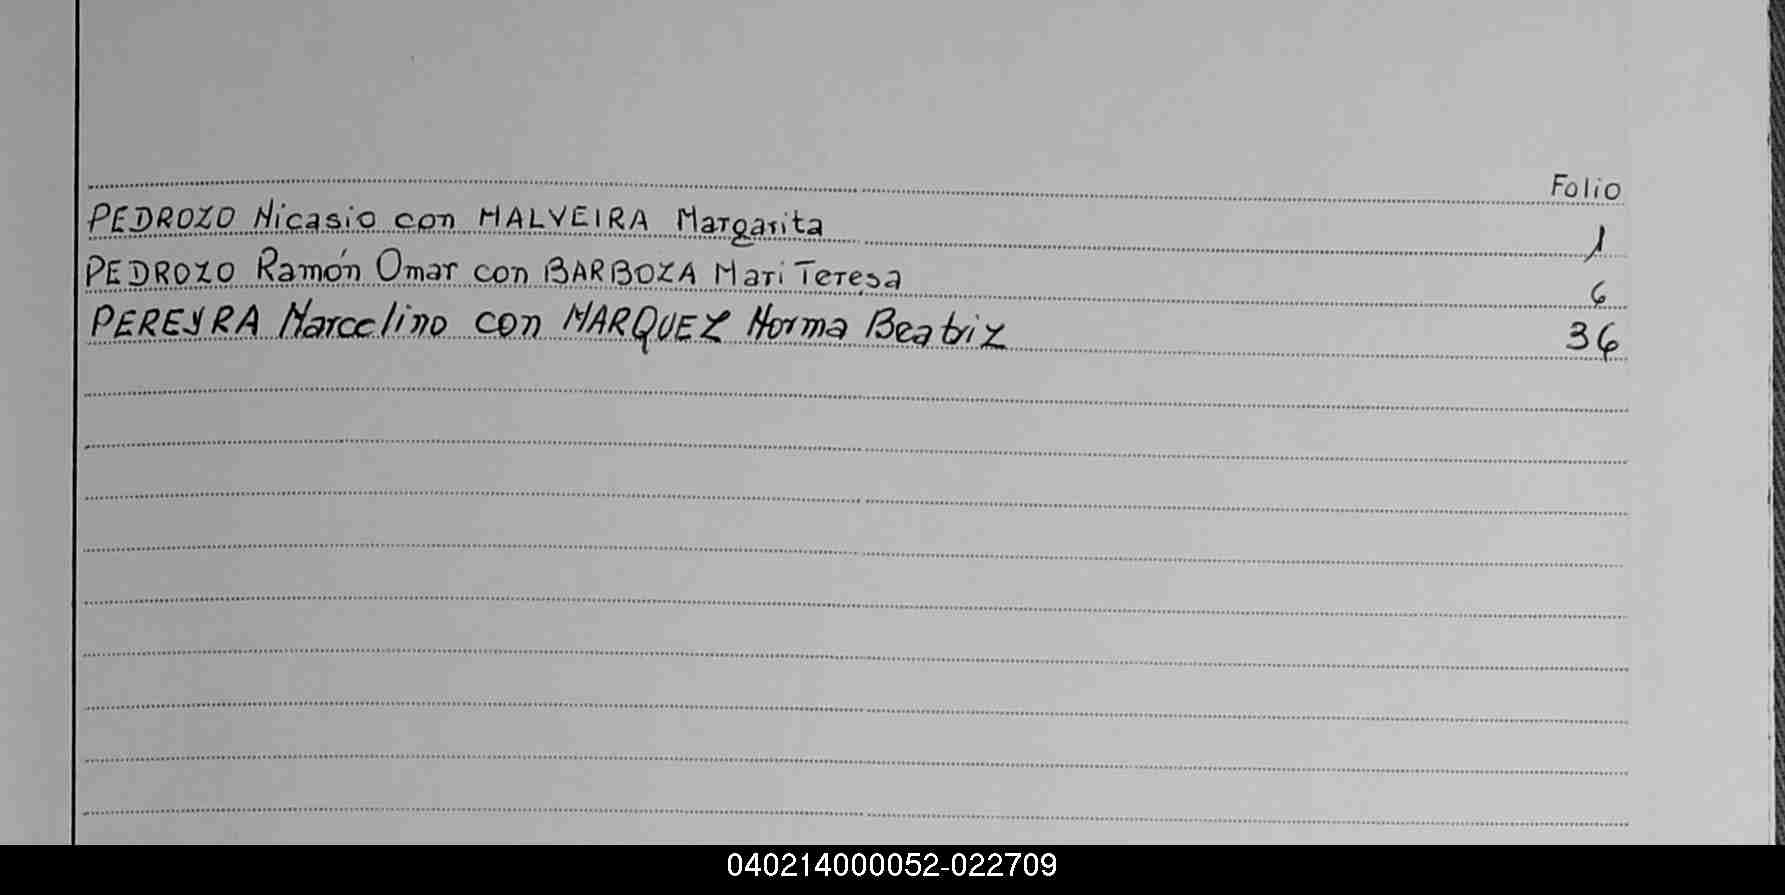 Folio
PEDROZO Nicasio con MALVEIRA Margarita 1
PEDROZO Ramón Omar con BARBOZA Mari Teresa 6
PEREYRA Marcelino con MARQUEZ Norma Beatriz 36
040214000052-022709